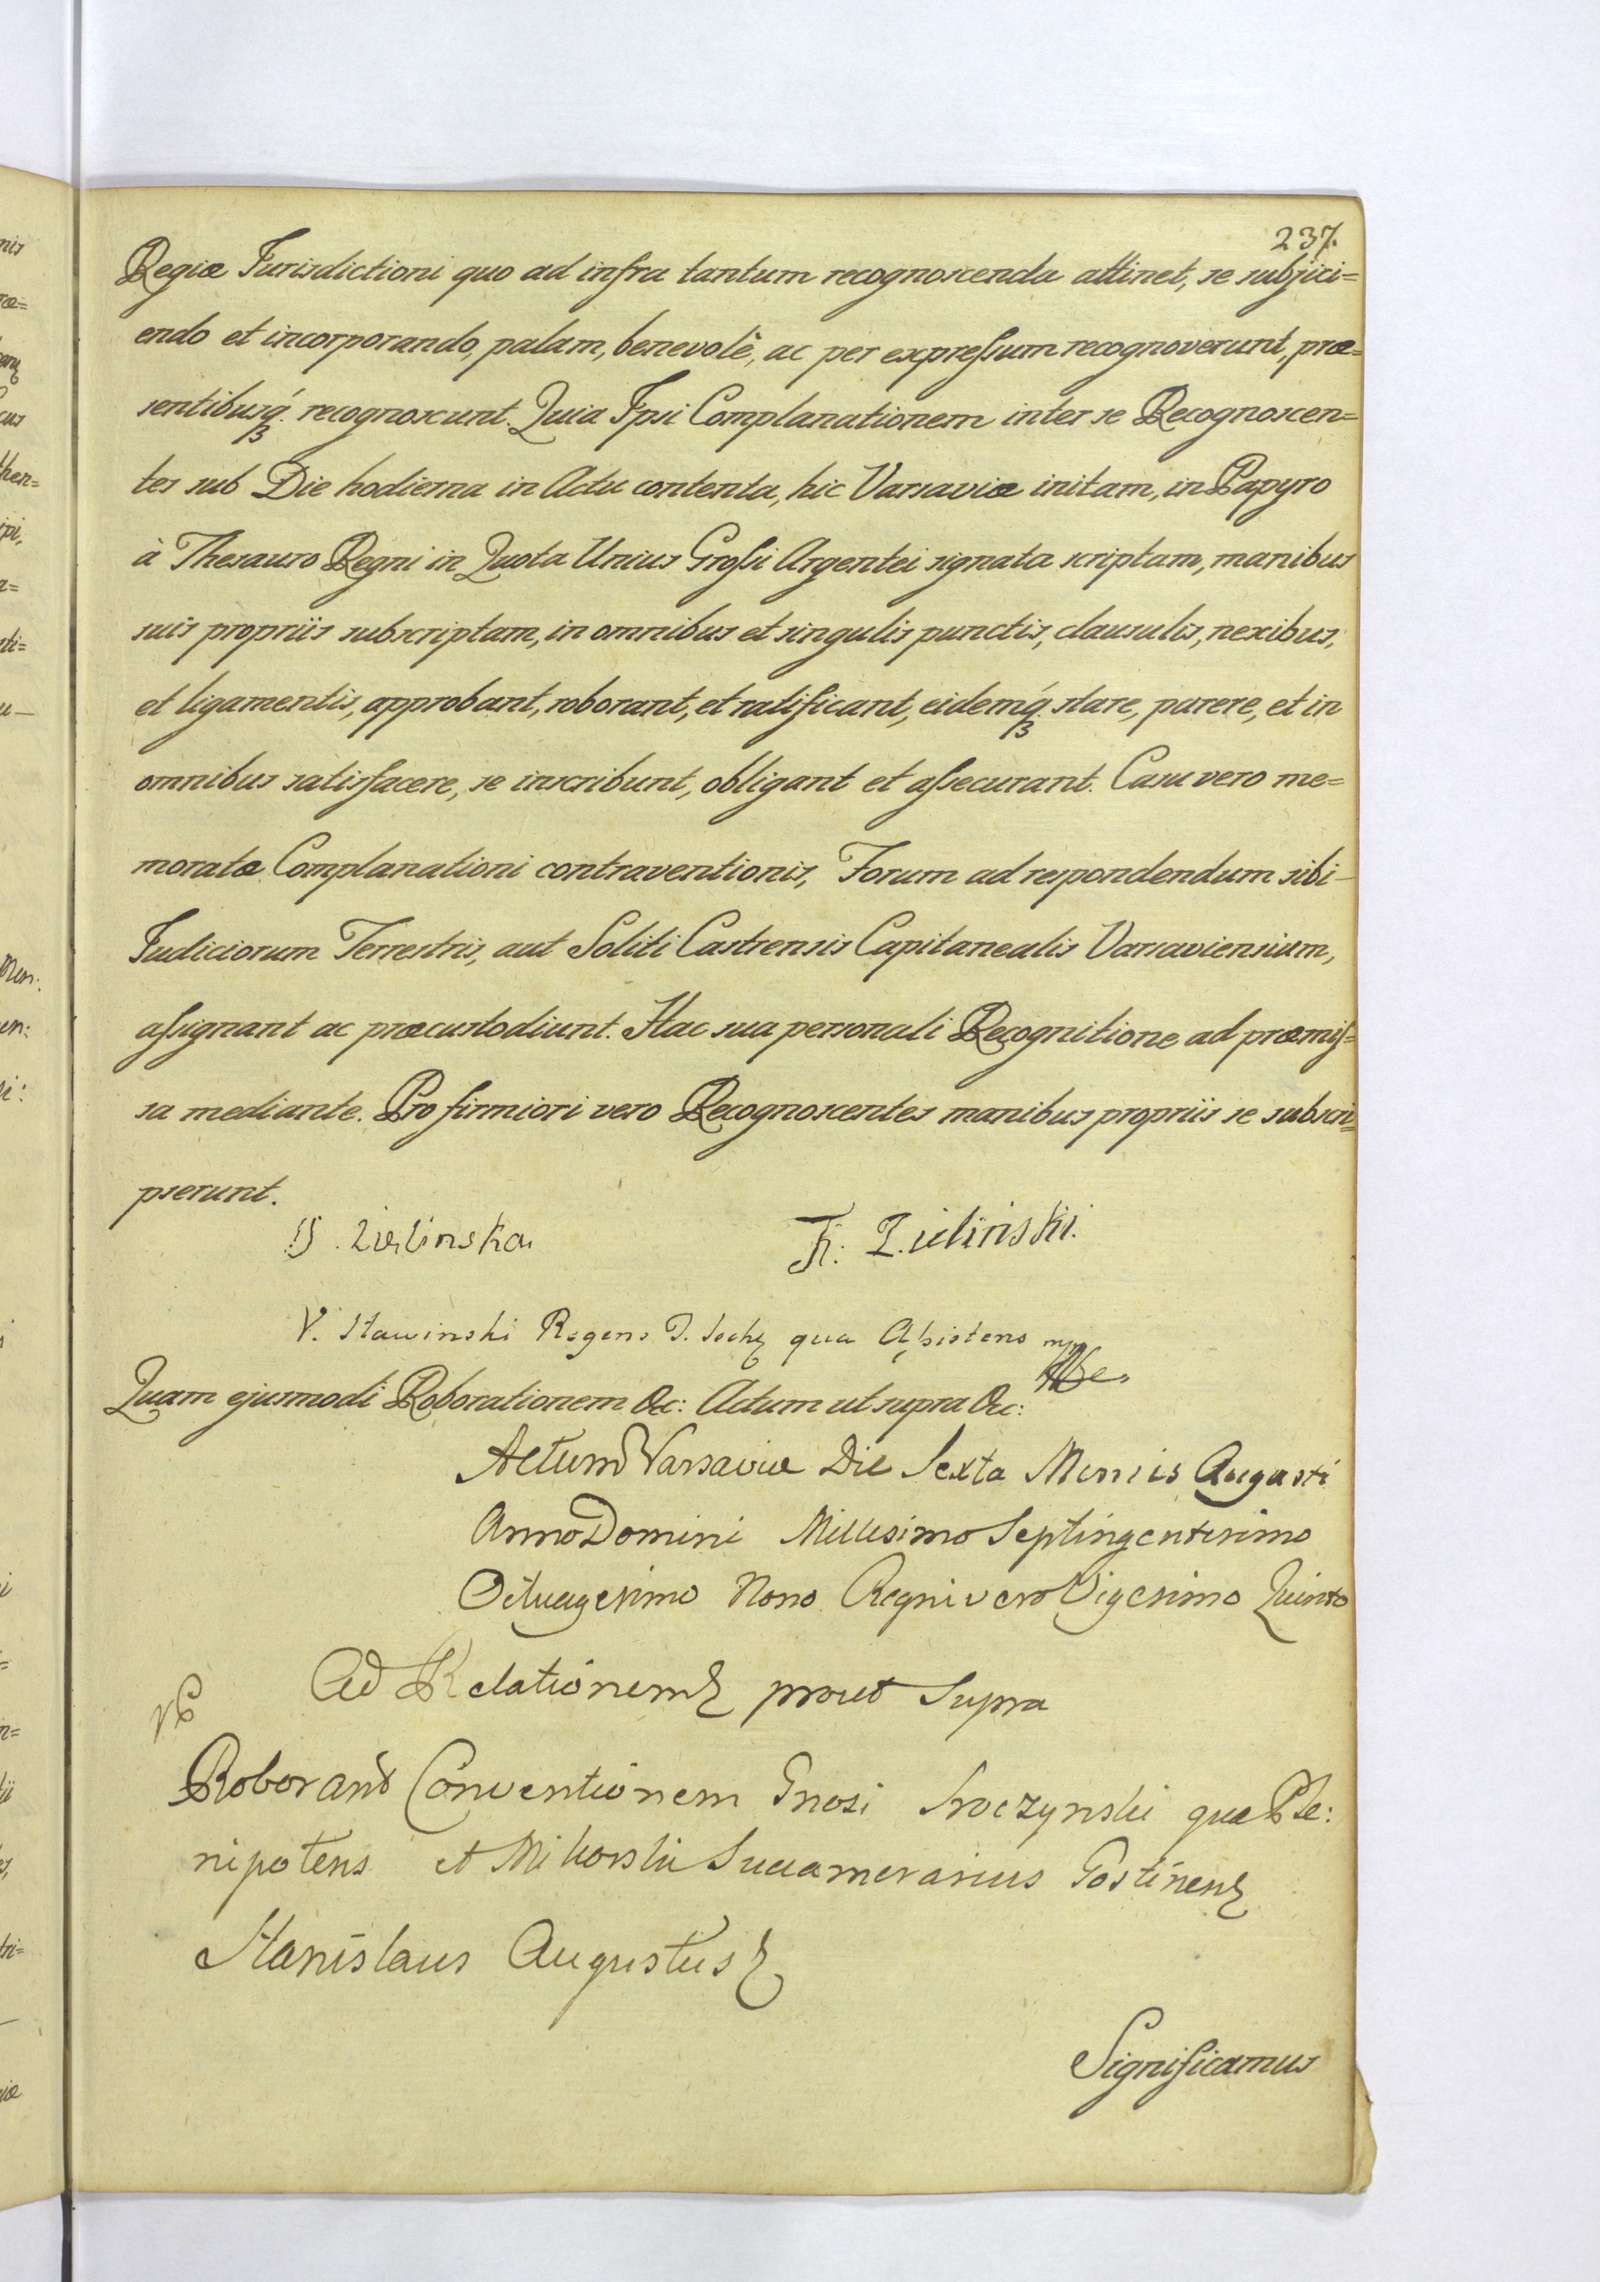 237.
Regiæ Jurisdictioni quo ad infra tantum recognoscenda attinet, se subjici=
endo et incorporando, palam, benevolè, ac per expreſsum recognoverunt, præ=
sentibusq́ꝫ recognoscunt. Quia Ipsi Complanationem inter se Recognoscen=
tes sub Die hodierna in Actu contenta, hic Varsaviæ initam, in Papyro
à Thesauro Regni in Quota Unius Groſsi Argentei signata scriptam, manibus
suis propriis subscriptam, in omnibus et singulis punctis, clausulis, nexibus,
et ligamentis, approbant, roborant, et ratificant, eidemq́ꝫ stare, parere, et in
omnibus satisfacere, se inscribunt, obligant et aſsecurant. Casu vero me=
moratæ Complanationi contraventionis, Forum ad respondendum sibi
Judiciorum Terrestris, aut Soliti Castrensis Capitanealis Varsaviensium,
aſsignant ac præcustodiunt. Hac sua personali Recognitione ad præmiſ=
sa mediante. Pro firmiori vero Recognoscentes manibus propriis se subscri=
pserunt.
Zielinska F: Zielinski.
V. Stawinski Regens qua Aſsistens mp
Quam ejusmodi Roborationem &c: Actum ut supra &c:
Actum Varsaviæ Die Sexta Mensis Augusti
Anno Domini Millesimo Septingentesimo
Octuagesimo Nono Regni vero Vigesimo Quinto
Ad Relationem prout Supra
Roborant Conventionem Gnosi Sroczynski qua Ple:
nipotens et Mikorski Succamerarius Gostinen
Stanislaus Augustus
Significamus